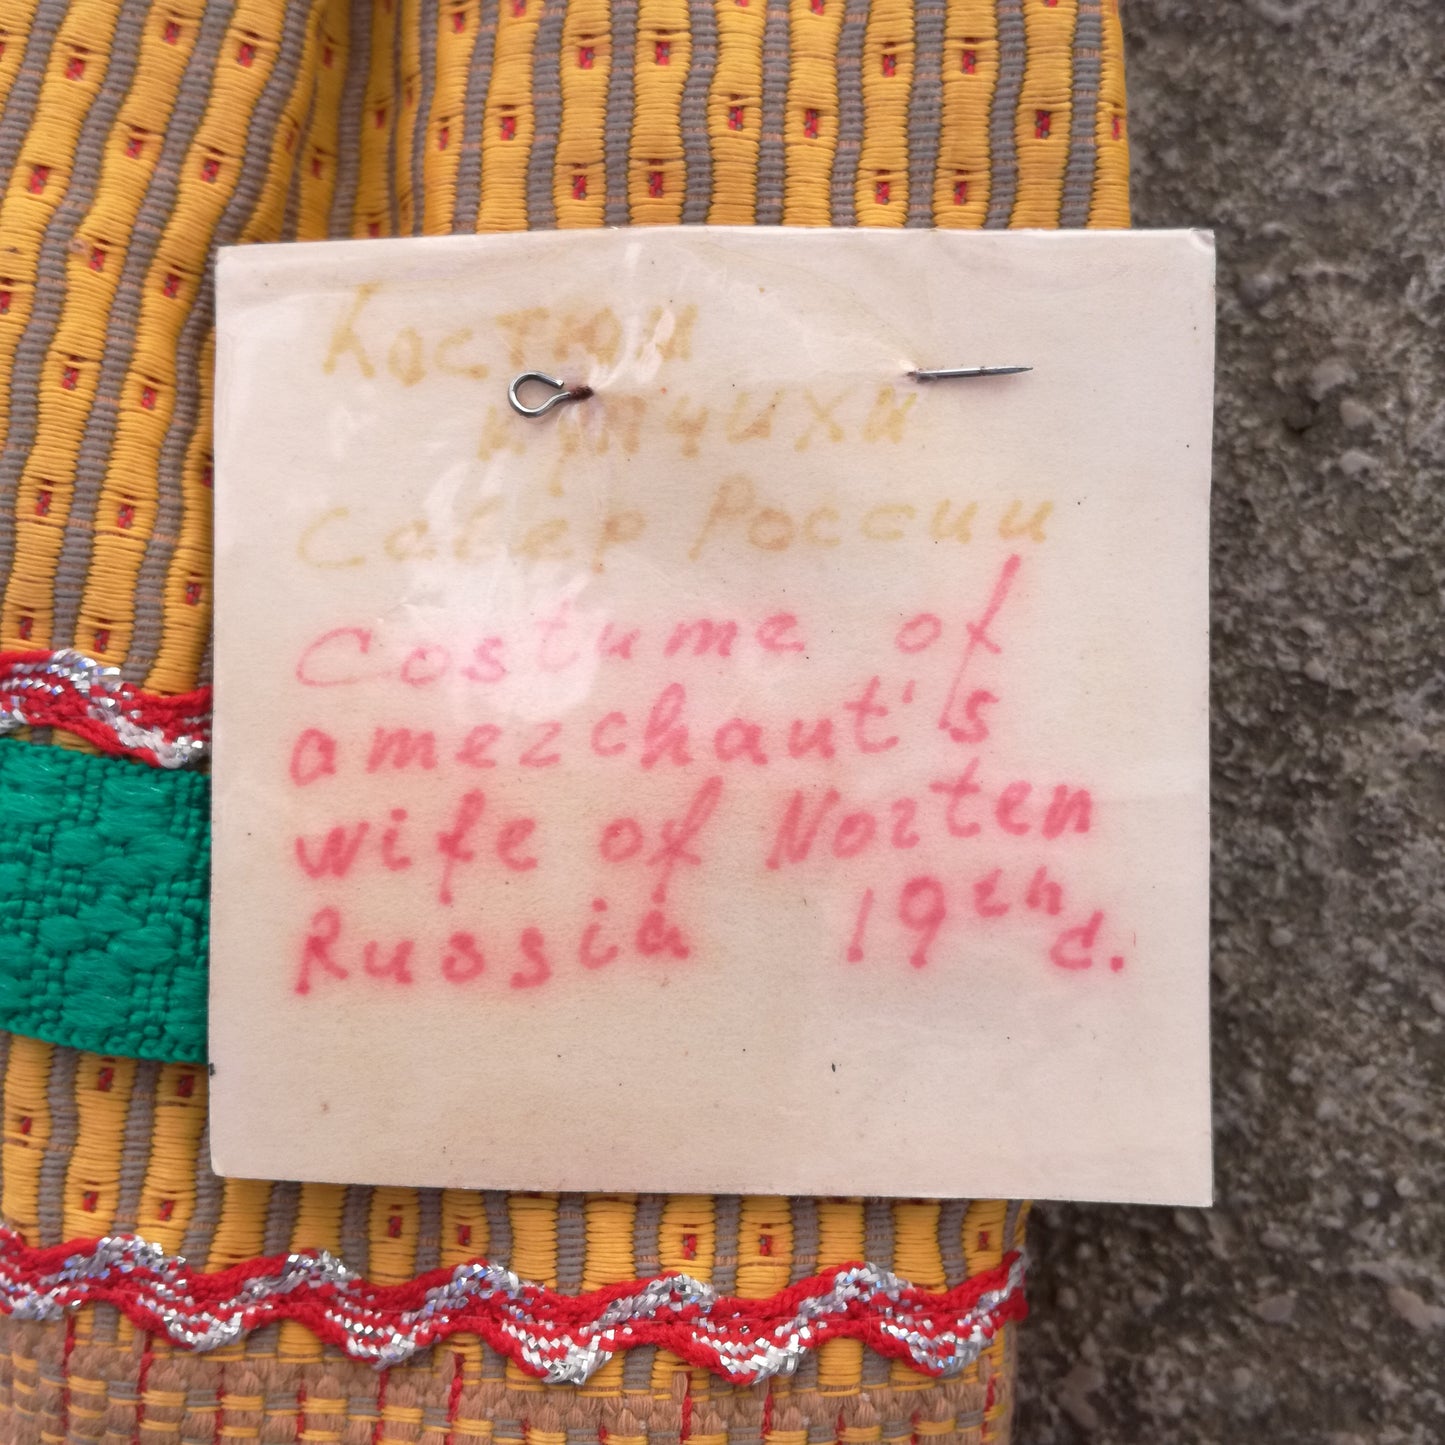 Костюм
купчихи
Север России
Costume of
a merchaut's
wife of Norten
Russia 19th c.